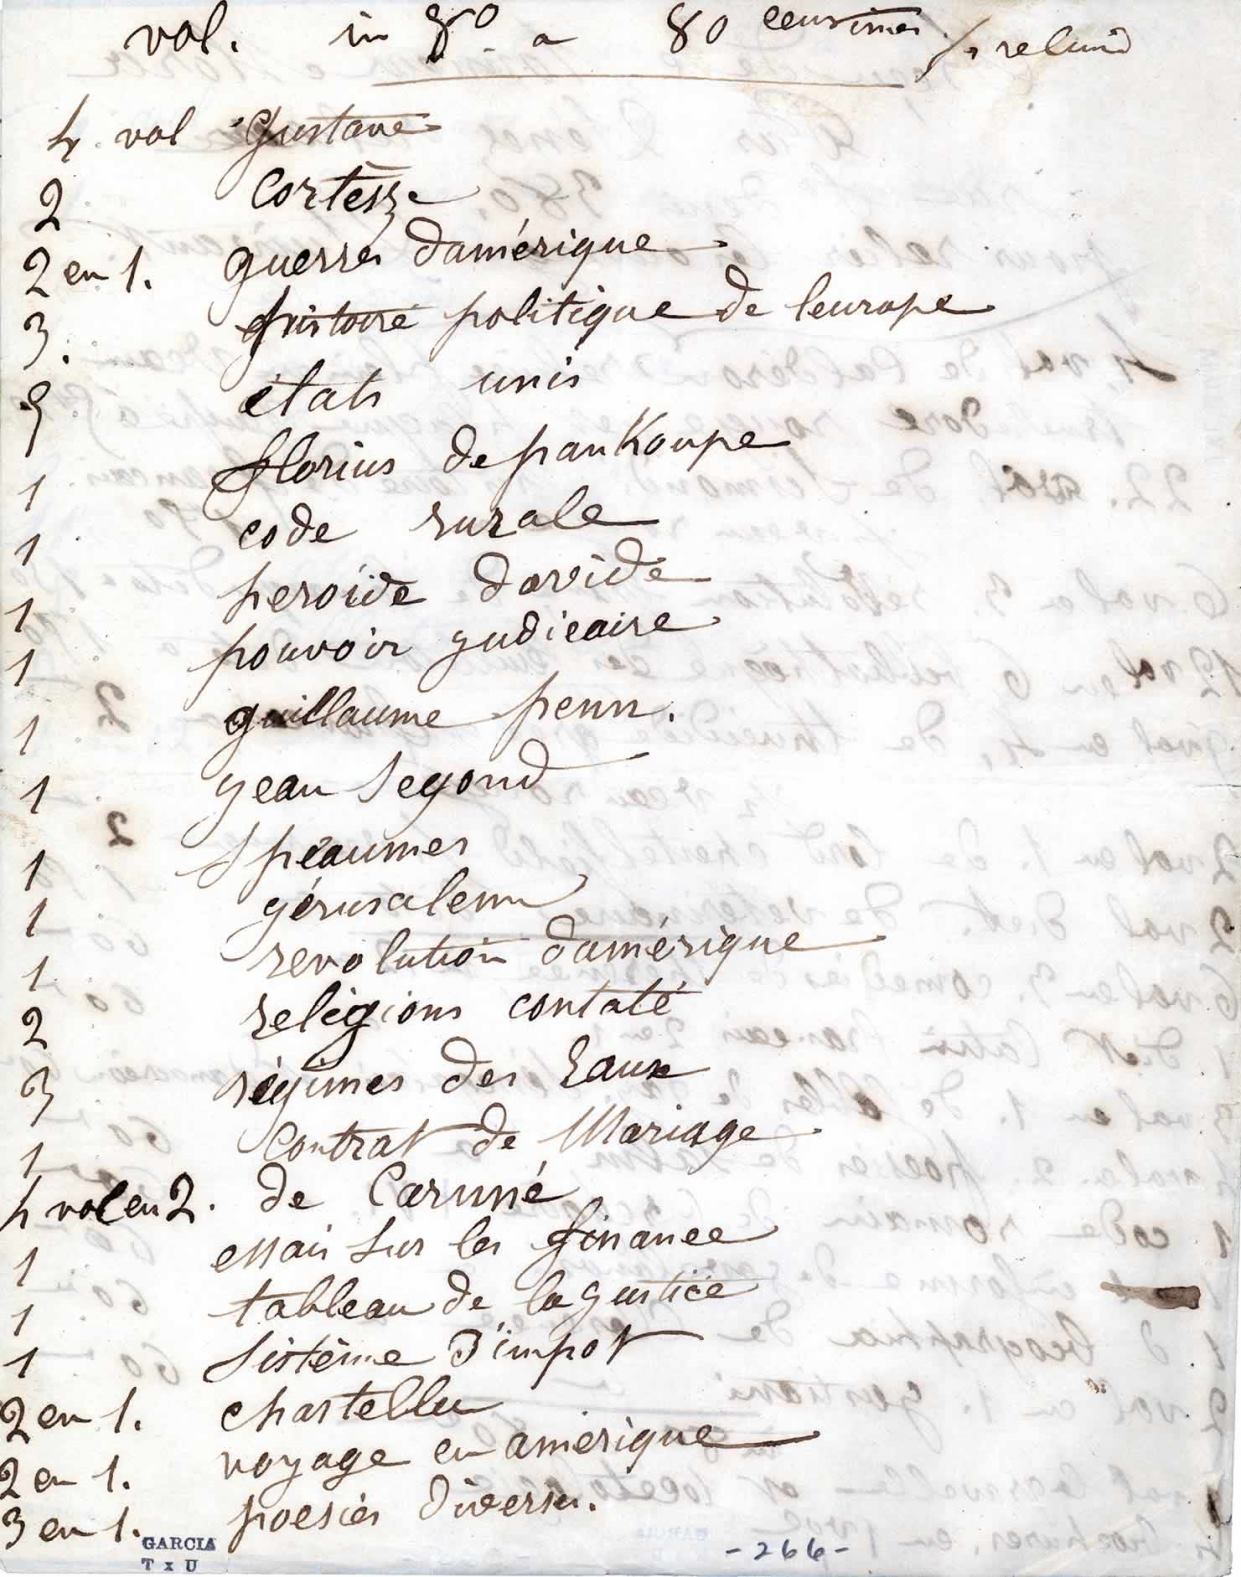 vol. in 8º a 80 centimes
4 vol gustave
2 Cortèsz
2 en 1. guerres damérique
3. histoire politique de leurope
9 états unis
1 florius de pankoupe
1 code rurale
1 heroide davide
1 pouvoir judicaire
1 guillaume penn.
1 jean segond
1 speaumes
1 jérusalem
1 revolution damérique
2 religions contaté
3 régimes des Eaux
1 Contrat de Mariage
4 vol en 2. de Carnné
1 essais sur les finance
1 tableau de la justice
1 sistême d'impot
2 en 1. chastellu
2 en 1. voyage en amerique
3 en 1. poesies diverses.
GARCIA
T x U
-266-